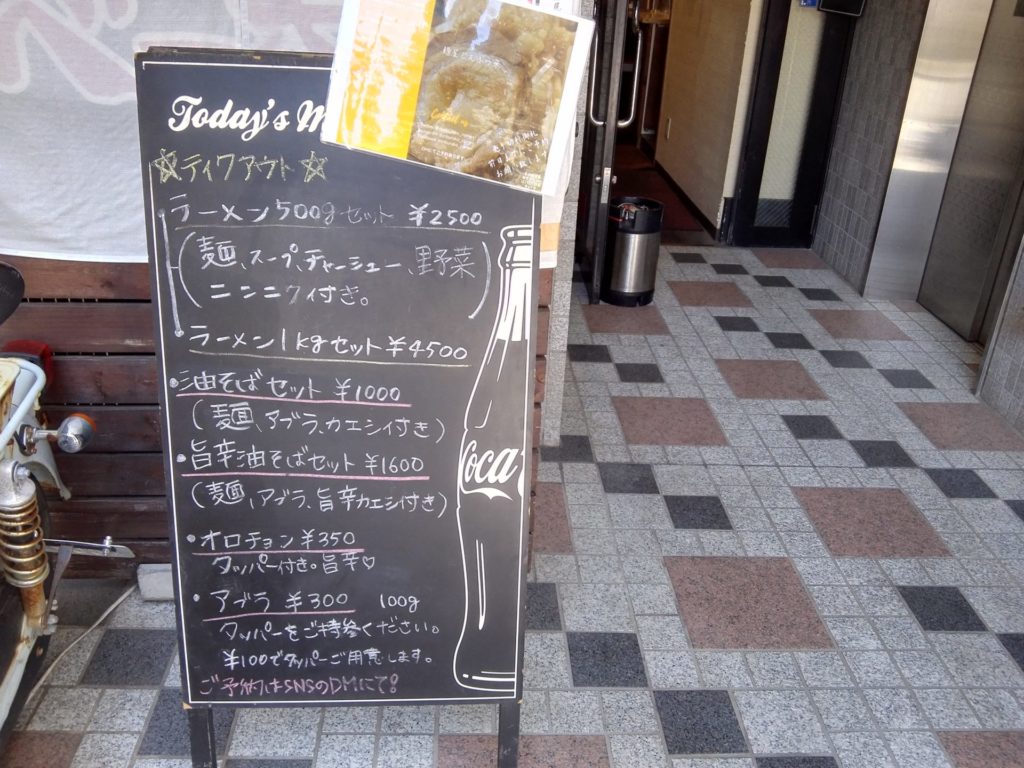 Today's M
☆テイクアウト☆
ラーメン500gセット ¥2500
(麺、スープ、チャーシュー、野菜
ニンニク付き。)
ラーメン1kgセット ¥4500
・油そばセット ¥1000
(麺、アブラ、カエシ付き)
・旨辛油そばセット ¥1600
(麺、アブラ、旨辛カエシ付き)
・オロチョン ¥350
タッパー付き。旨辛♡
・アブラ ¥300 100g
タッパーをご持参ください。
¥100でタッパーご用意します。
ご予約はSNSのDMにて!
Coca